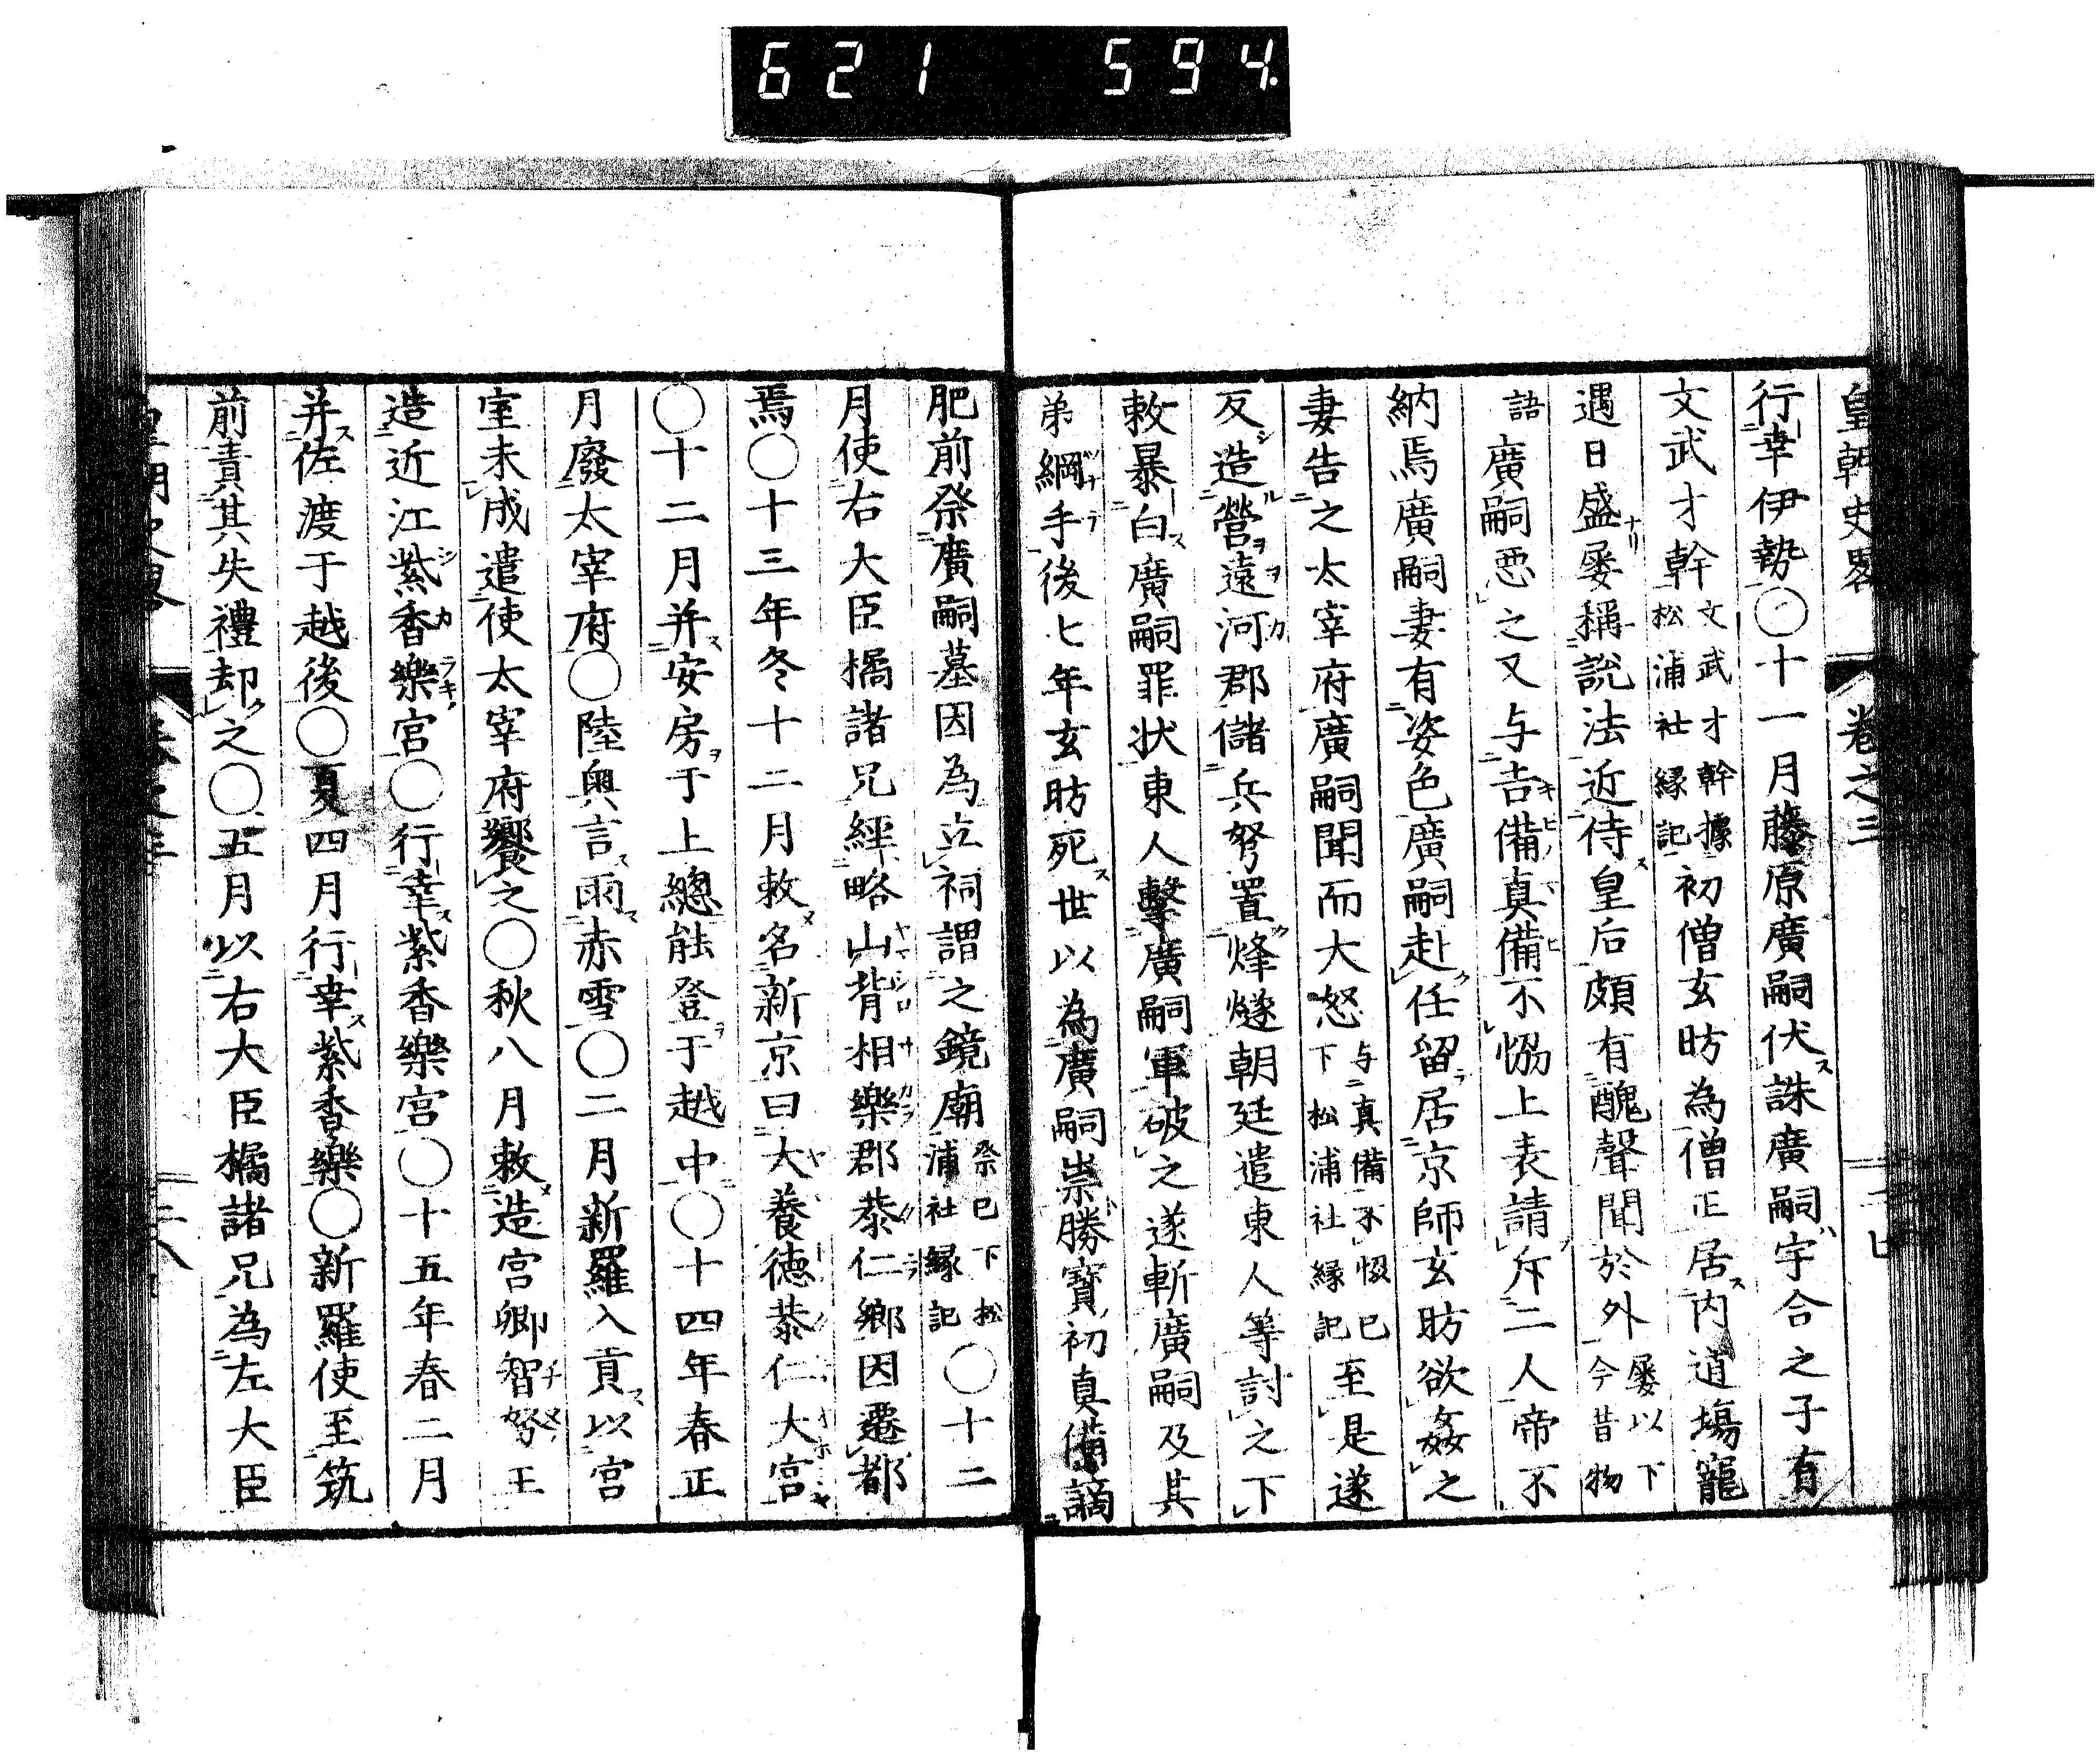 621 594.
皇朝史畧 卷之三
行幸伊勢○十一月藤原廣嗣伏誅廣嗣宇合之子有
文武才幹文武才幹據松浦社縁記初僧玄昉為僧正居内道塲寵
遇日盛屡稱說法近侍皇后頗有醜聲聞於外屡以下今昔物
語廣嗣惡之又与吉備真備不恊上表請斥二人帝不
納焉廣嗣妻有姿色廣嗣赴任留居京師玄昉欲姦之
妻告之太宰府廣嗣聞而大怒与真備不恊已下松浦社縁記至是遂
反造營遠河郡儲兵弩置烽燧朝廷遣東人等討之下
敕暴白廣嗣罪状東人擊廣嗣軍破之遂斬廣嗣及其
弟綱手後七年玄昉死世以為廣嗣祟勝寶初真備謫
肥前祭廣嗣墓因為立祠謂之鏡廟祭已下松浦社縁記○十二
月使右大臣橘諸兄經略山背相樂郡恭仁鄉因遷都
焉○十三年冬十二月敕名新京曰大養德恭仁大宮
○十二月并安房于上總能登于越中○十四年春正
月廢太宰府○陸奥言雨赤雪○二月新羅入貢以宮
室未成遣使太宰府饗之○秋八月敕造宮卿智努王
造近江紫香樂宮○行幸紫香樂宮○十五年春二月
并佐渡于越後○夏四月行幸紫香樂○新羅使至筑
前責其失禮却之○五月以右大臣橘諸兄為左大臣